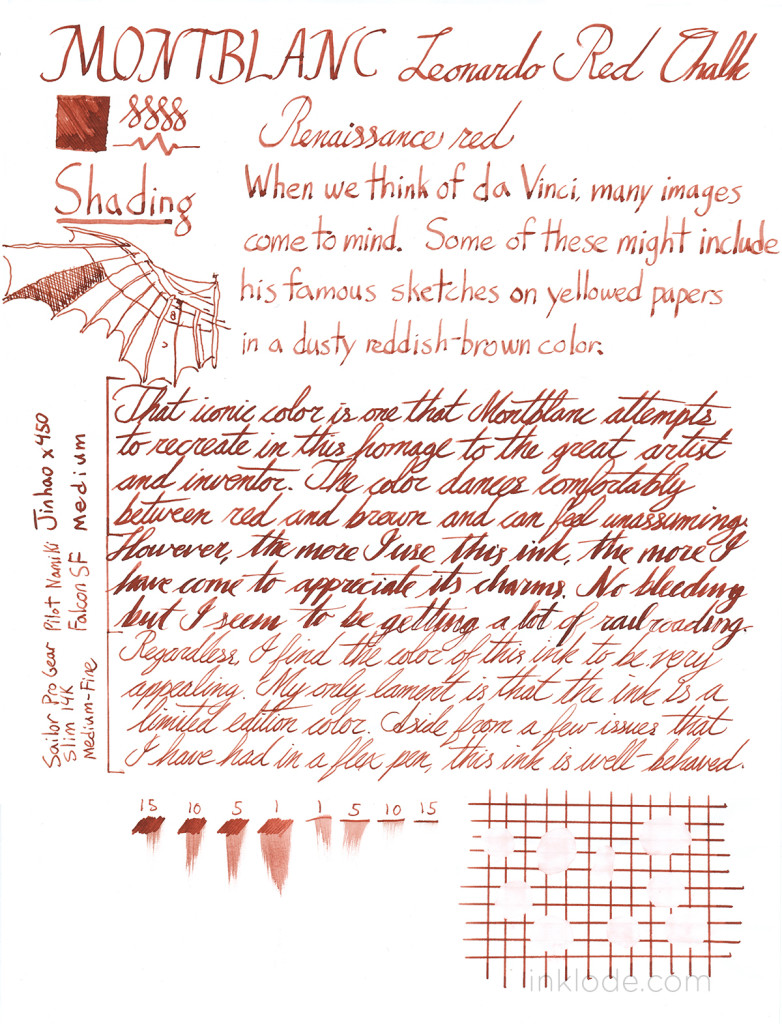 MONTBLANC Leonardo Red Chalk
Renaissance red
Shading
When we think of da Vinci, many images
come to mind. Some of these might include
his famous sketches on yellowed papers
in a dusty reddish-brown color.
8
Jinhao x450
Medium
That iconic color is one that Montblanc attempts
to recreate in this homage to the great artist
and inventor. The color dances comfortably
between red and brown and can feel unassuming.
Pilot Namiki
Falcon SF
However, the more I use this ink, the more I
have come to appreciate its charms. No bleeding
but I seem to be getting a lot of railroading.
Sailor Pro Gear
Slim 14K
Medium-Fine
Regardless, I find the color of this ink to be very
appealing. My only lament is that the ink is a
limited edition color. Aside from a few issues that
I have had in a flex pen, this ink is well-behaved.
15 10 5 1 1 5 10 15
inklode.com